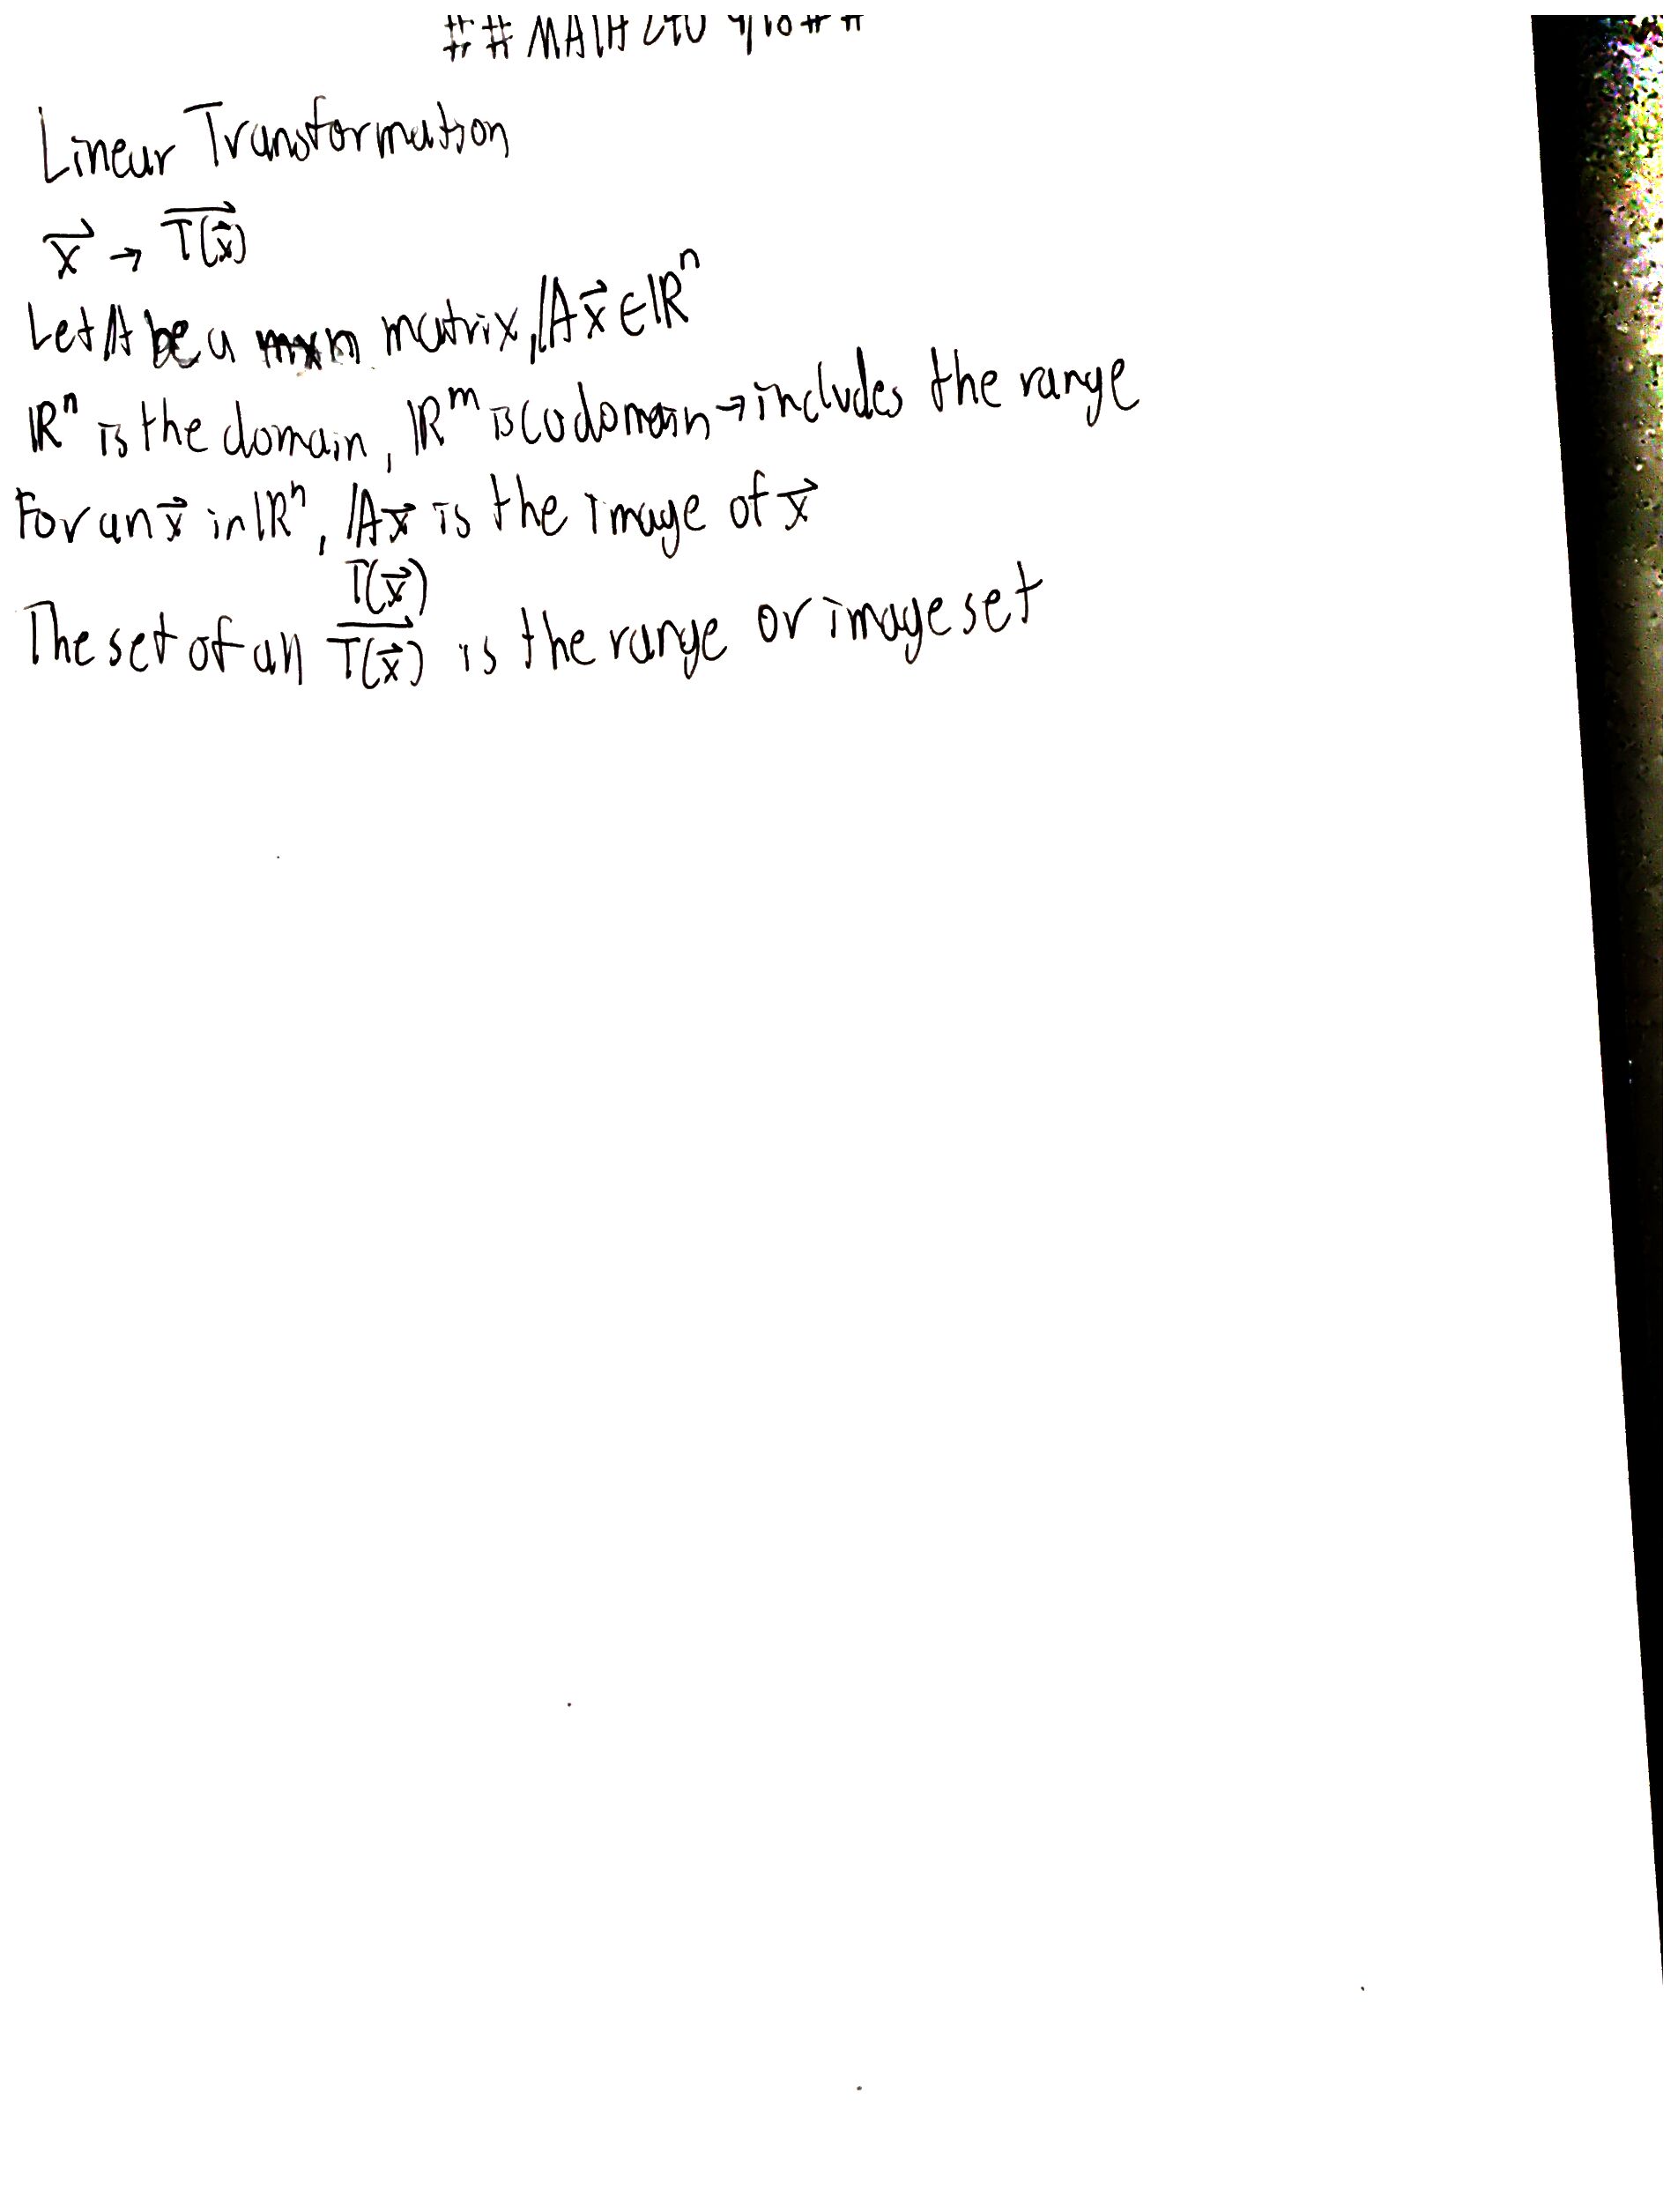 ## MATH 240 9/10 ##
Linear Transformation
x⃗ → T(x⃗)
Let A be a mxn matrix, Ax⃗ ∈ ℝⁿ
ℝⁿ is the domain, ℝᵐ is codomain → includes the range
For an x⃗ in ℝⁿ, Ax⃗ is the image of x⃗
T(x⃗)
The set of all T(x⃗) is the range or image set